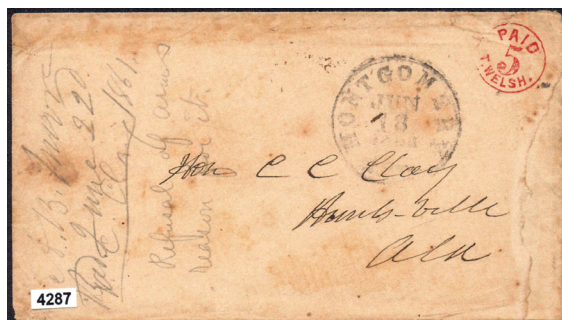 PAID
5
T. WELSH.
MONTGOMERY
JUN
18
Hon C C Clay
Huntsville
Ala
June 22d
1861
Refusal of arms
reason
4287